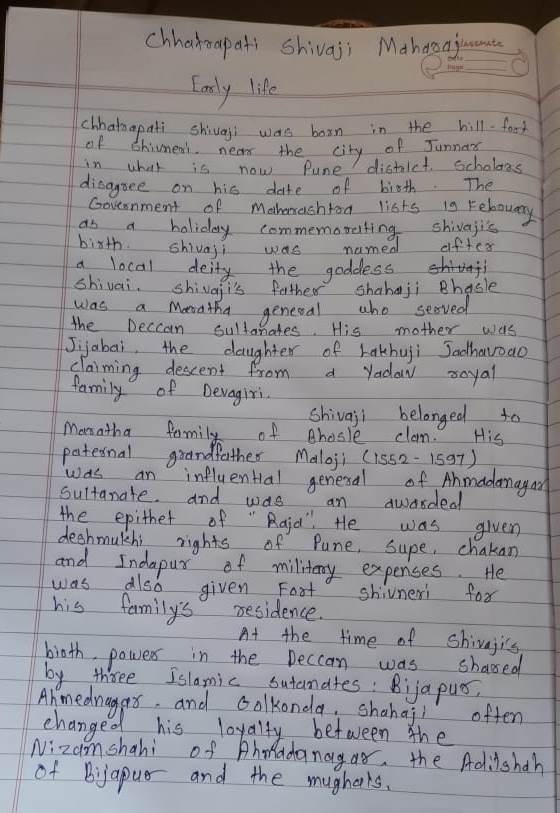 Chhatrapati Shivaji Maharaj
classmate
Date
Page
Early life
Chhatrapati Shivaji was born in the hill-fort
of Shivneri. near the city of Junnar
in what is now Pune district. Scholars
disagree on his date of birth. The
Government of Maharashtra lists 19 Febouary
as a holiday commemoraiting Shivaji's
birth. Shivaji was named after
a local deity the goddess shivaji
Shivai. Shivaji's father Shahaji Bhosle
was a Maratha general who served
the Deccan Sultanates. His mother was
Jijabai, the daughter of Lakhuji Jadhavrao
claiming descent from a Yadav royal
family of Devagiri.
Shivaji belonged to
Maratha family of Bhosle clan. His
paternal grandfather Maloji (1552-1597)
was an influential general of Ahmadanagar
Sultanate. and was an awarded
the epithet of "Raja". He was given
deshmukhi rights of Pune, Supe, chakan
and Indapur of military expenses. He
was also given Fort Shivneri for
his family's residence.
At the time of Shivaji's
birth, power in the Deccan was shared
by three Islamic sutanates: Bijapur,
Ahmednagar, and Golkonda. Shahaji often
changed his loyalty between the
Nizamshahi of Ahmadanagar, the Adilshah
of Bijapur and the mughals.